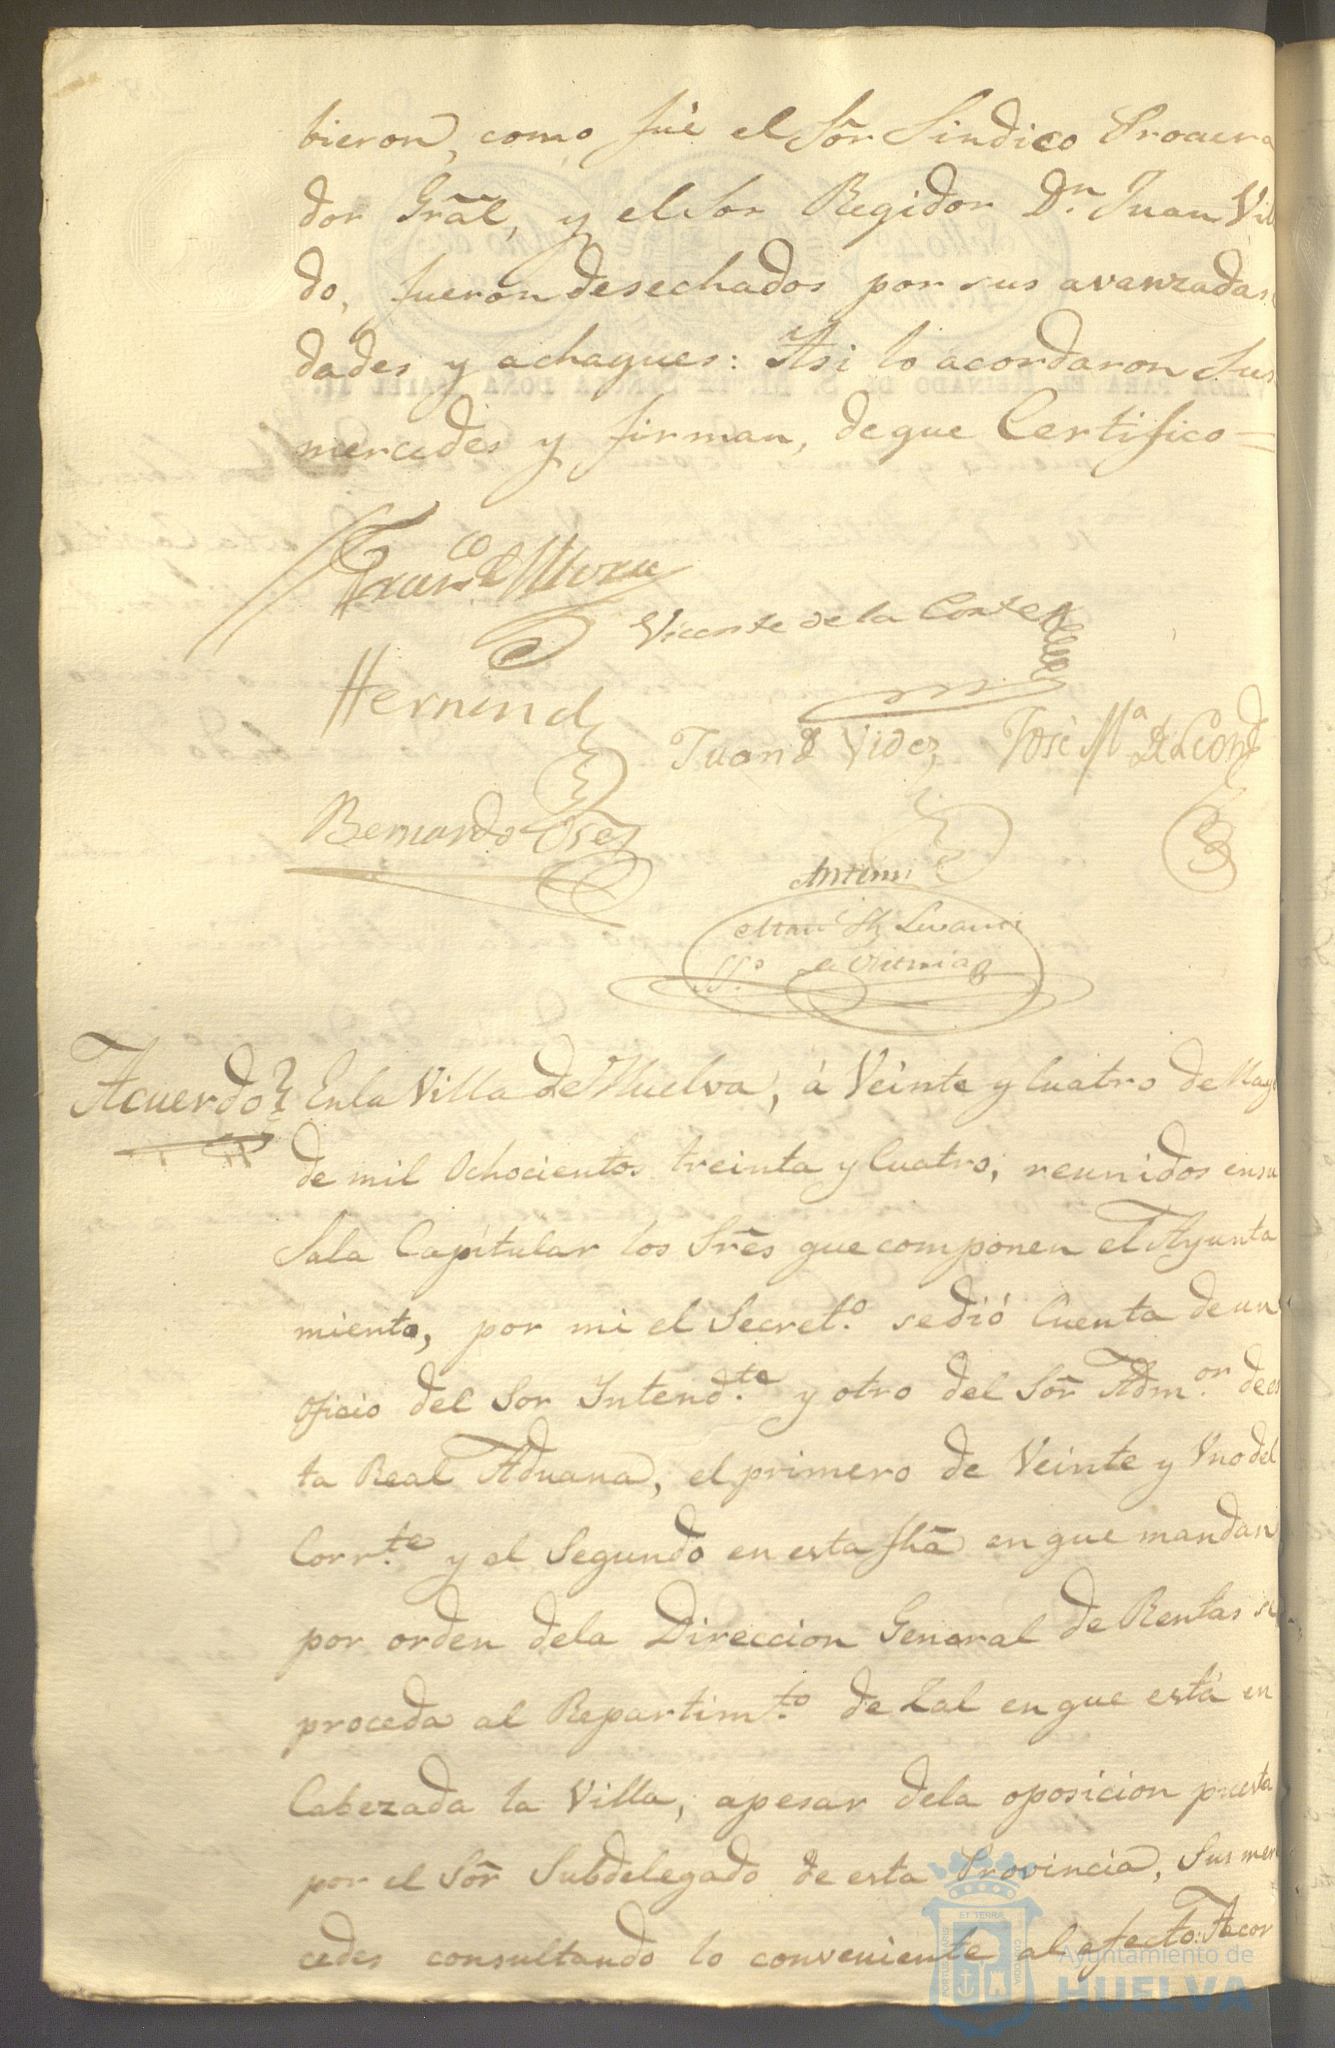 bieron, como fué el Sõr Sindico Procura
dor Grãl, y el Sor Regidor Dn. Juan Vi
do, fueron desechados por sus avanzadas
dades y achaques: Asi lo acordaron Sus
mercedes y firman, de que Certifico=
Franco. de Mora
Vicente de la Corte
Hernand
Juan de Videz
José Ma de Leon
Bernardo
Antemi
Sso.
Acuerdo
En la Villa de Huelva, á Veinte y Cuatro de Mayo
de mil Ochocientos treinta y Cuatro, reunidos en su
Sala Capitular los Srẽs que componen el Ayunta
miento, por mi el Secreto. se dió Cuenta de un
oficio del Sor Intendte. y otro del Sõr Admor. de es
ta Real Aduana, el primero de Veinte y Uno del
Corrte. y el Segundo en esta fhã en que mandan
por orden dela Direccion General de Rentas se
proceda al Repartimto. de Sal en que está en
Cabezada la Villa, apesar dela oposicion puesta
por el Sõr Subdelegado de esta Provincia, Sus mer
cedes consultando lo conveniente al efecto: Acor
Ayuntamiento de
HUELVA